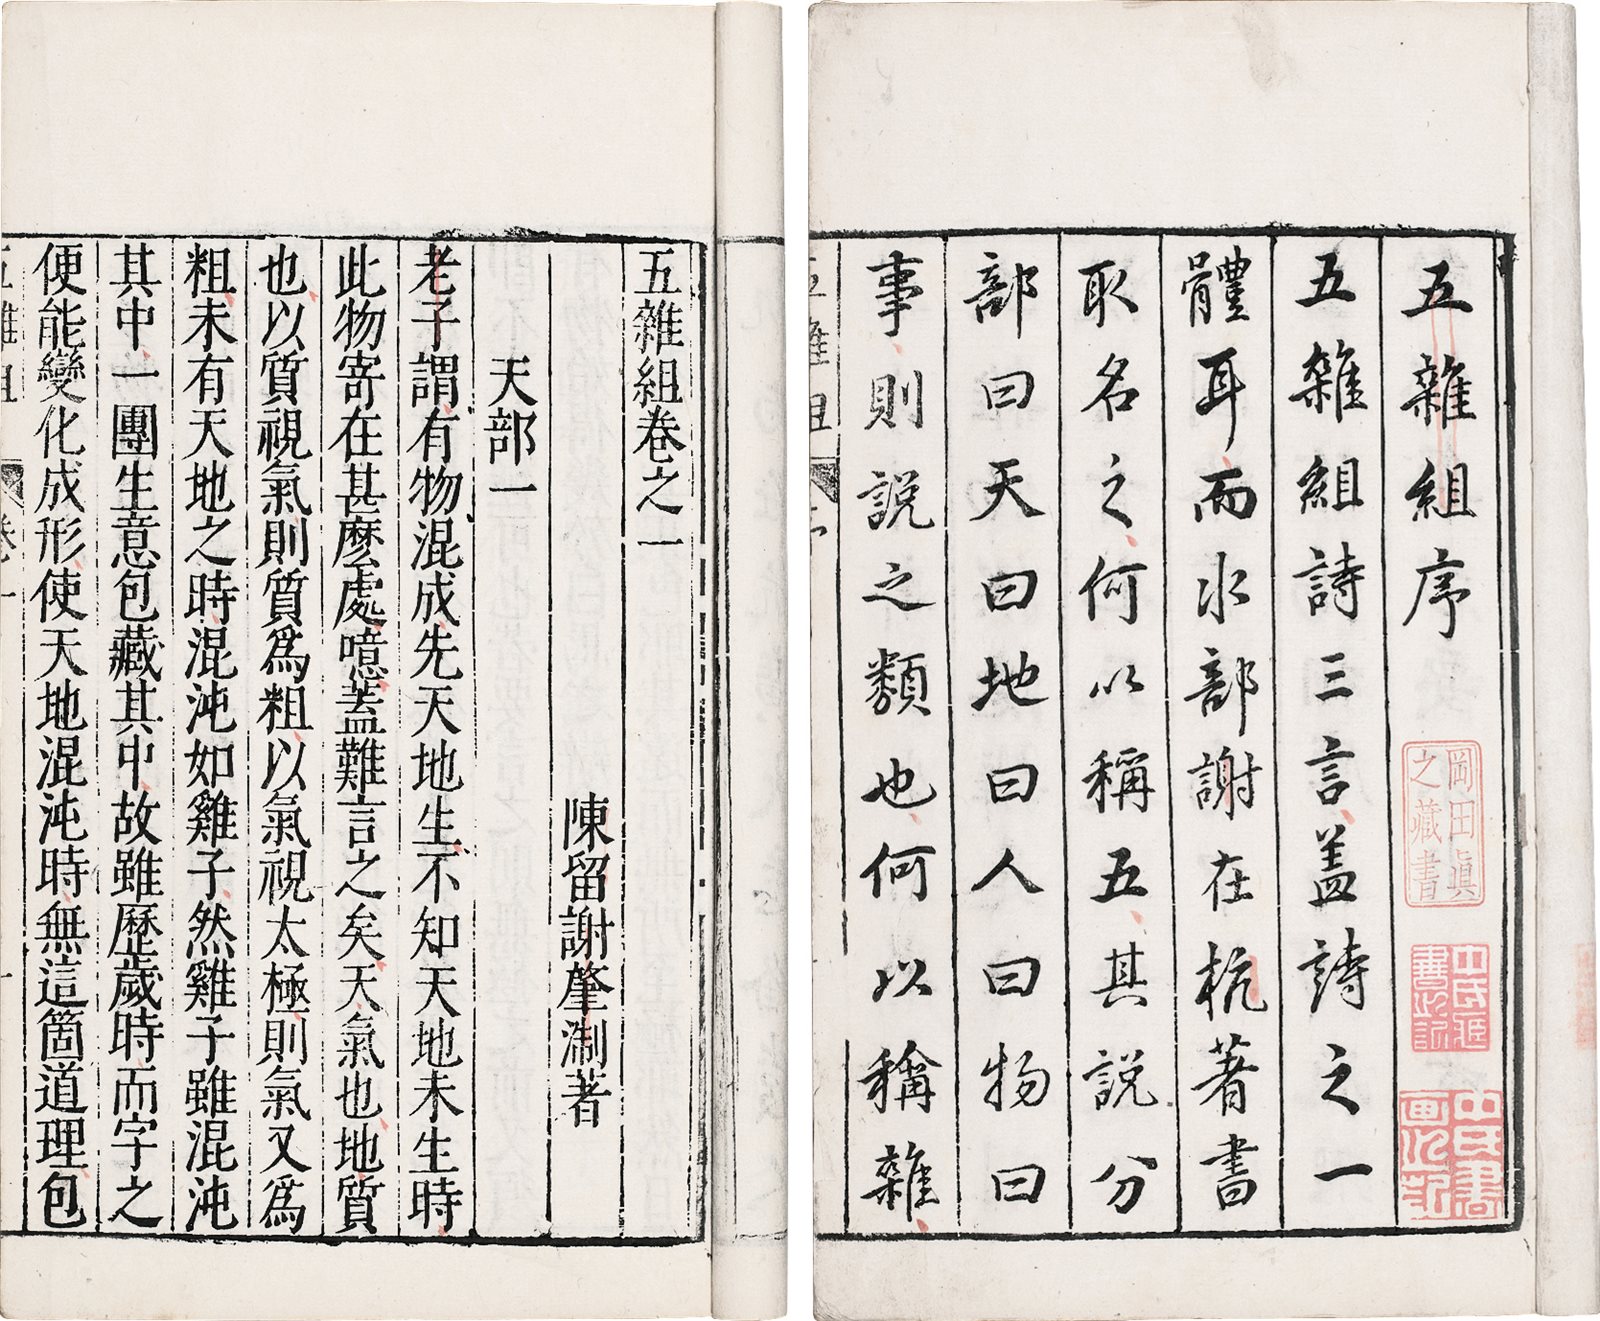 五雜組序
五雜組詩三言蓋詩之一
體耳而水部謝在杭著書
取名之何以稱五其說分
部曰天曰地曰人曰物曰
事則說之類也何以稱雜
岡田眞
之藏書
五雜組卷之一
陳留謝肇淛著
天部一
老子謂有物混成先天地生不知天地未生時
此物寄在甚麼處噫蓋難言之矣天氣也地質
也以質視氣則質爲粗以氣視太極則氣又爲
粗未有天地之時混沌如雞子然雞子雖混沌
其中一團生意包藏其中故雖歷歲時而字之
便能變化成形使天地混沌時無這箇道理包